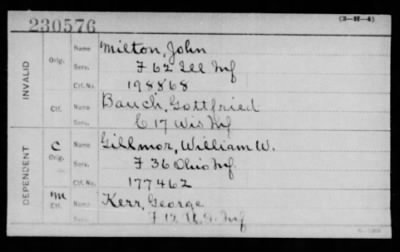 230576
(3-H-4)
INVALID
Orig.
Name Milton, John
Serv. F 62 Ill Inf
Ctf. No. 198868
Ctf.
Name Bauch, Gottfried
Serv. C 17 Wis Inf
DEPENDENT
C
Orig.
Name Gillmor, William W.
Serv. F 36 Ohio Inf
Ctf. No. 177462
M
Ctf.
Name Kerr, George
Serv. F 12 U.S. Inf